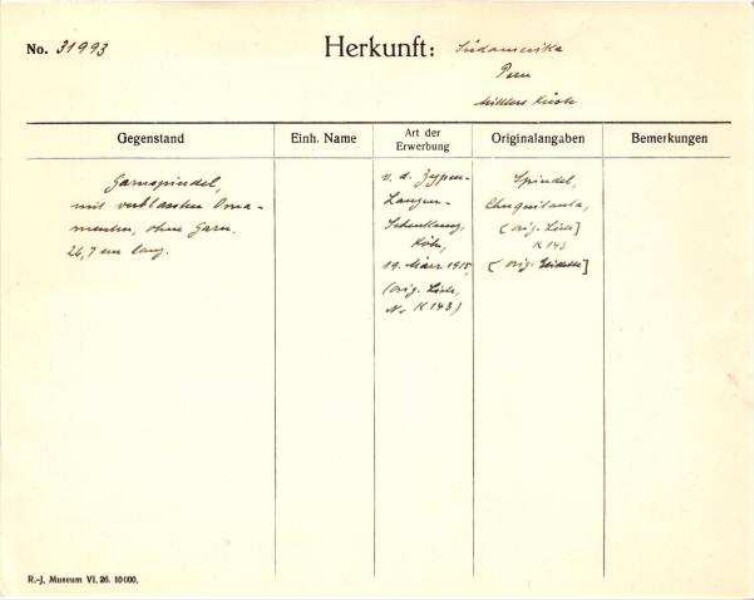 No. 31993
Herkunft: Südamerika
Peru
Mittlere Küste
Gegenstand
Einh. Name
Art der
Erwerbung
Originalangaben
Bemerkungen
Garnspindel,
mit verblassten Orna-
menten, ohne Garn.
26,7 cm lang.
v. d. Zypen-
Langen-
Schenkung,
Köln,
19. März 1915
(orig. Liste,
No K 143)
Spindel,
Chuquitanta,
(orig. Liste]
K 143
(orig. ]
R.-J. Museum VI. 26. 10000.